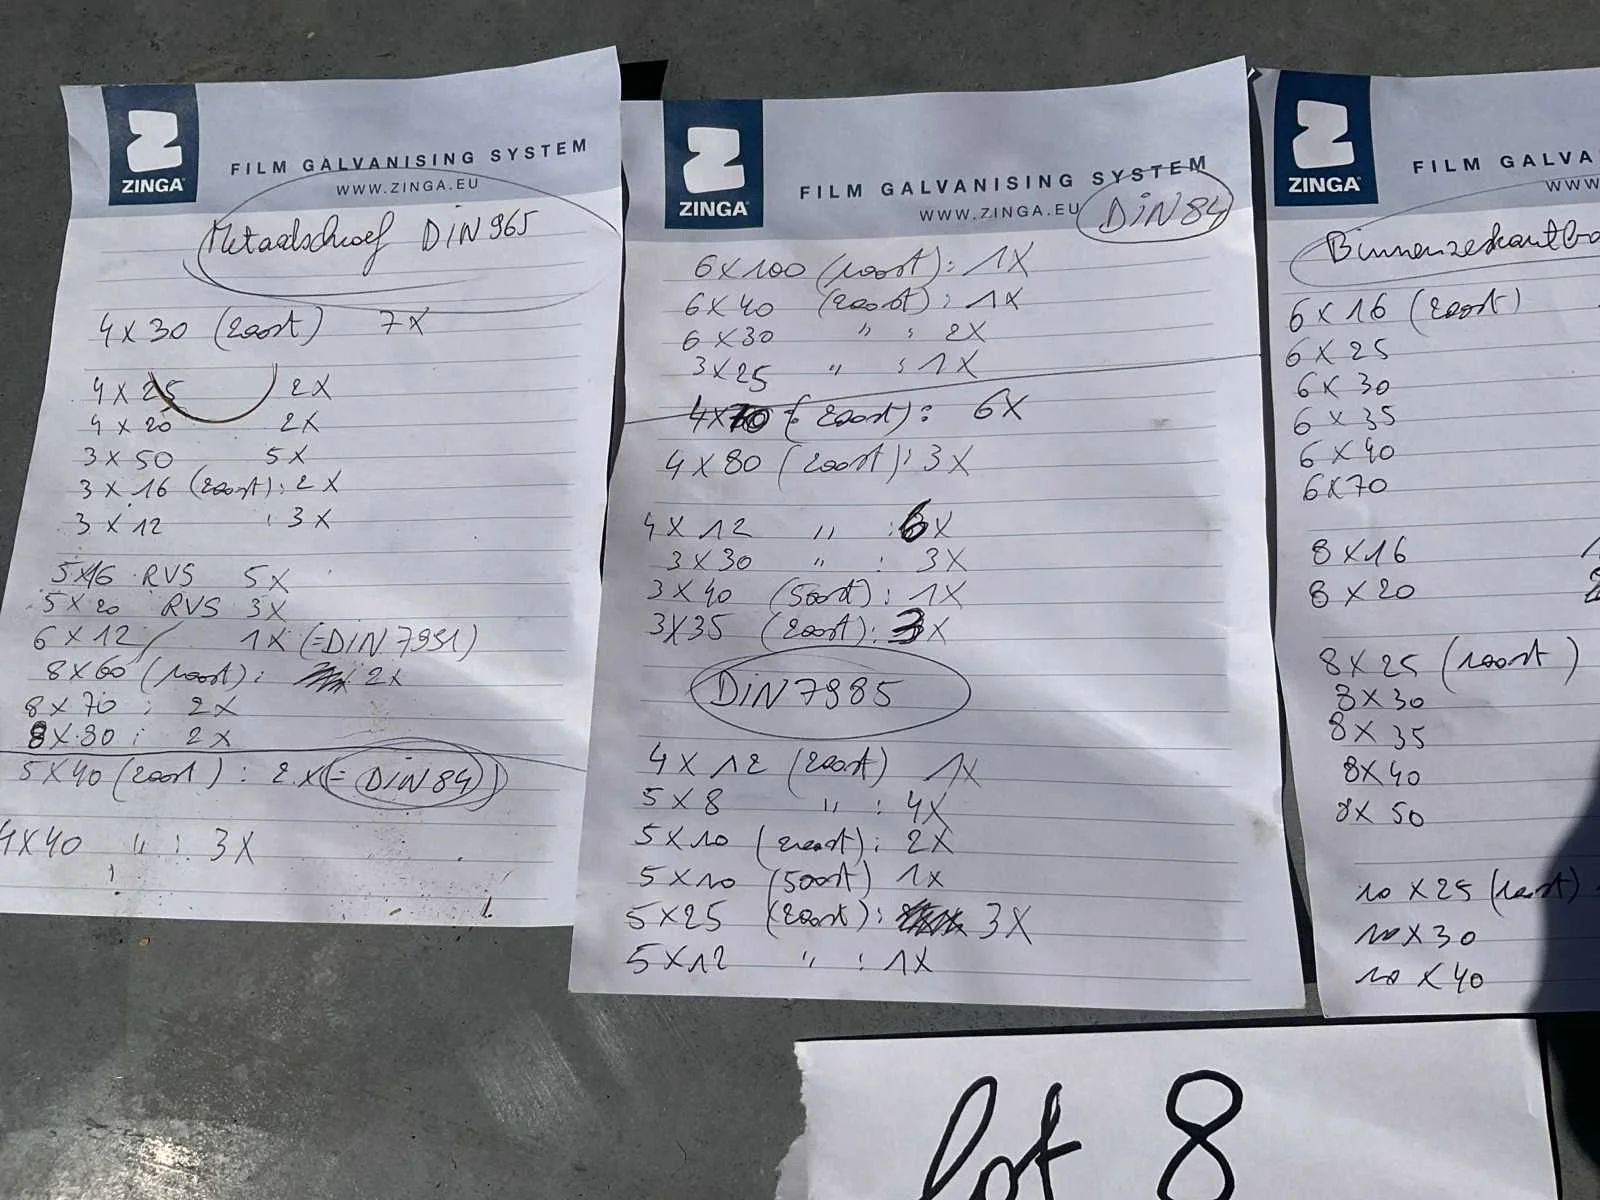 ZINGA
FILM GALVANISING SYSTEM
WWW.ZINGA.EU
Metaalschroef DIN 965
4 X 30 (200st) 7X
4 X 25 2X
4 X 20 2X
3 X 50 5X
3 X 16 (200st): 2X
3 X 12 : 3X
5X16 RVS 5X
5 X 20 RVS 3X
6 X 12 / 1X (=DIN 7991)
8X60 (100st): 2X
8 X 70 : 2X
8X80 : 2X
5X40 (200st) : 2 X (= DIN 84)
4X40 " : 3X
ZINGA
FILM GALVANISING SYSTEM
WWW.ZINGA.EU
DIN 84
6X100 (100st): 1X
6 X 40 (200st): 1X
6 X 30 " : 2X
3X25 " : 1X
4X70 : (200st): 6X
4 X 80 (200st): 3X
4 X 12 " : 6X
3 X 30 " : 3X
3 X 40 (500st): 1X
3X35 (200st): 3X
DIN 7985
4 X 12 (200st) 1X
5 X 8 " : 4X
5 X 10 (200st): 2X
5 X 10 (500st) 1X
5 X 25 (200st): 3X
5 X 12 " : 1X
ZINGA
FILM GALVA
WWW
Binnenzeskantbo
6 X 16 (200st)
6 X 25
6 X 30
6 X 35
6 X 40
6X70
8 X16
8 X 20
8 X 25 (100st)
8 X 30
8X 35
8X 40
8X 50
10 X 25 (100st)
10 X 30
10 X 40
lot 8